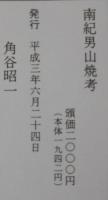 南紀男山焼考
頒価二〇〇〇円
(本体一九四二円)
発行 平成三年六月二十四日
角谷昭一